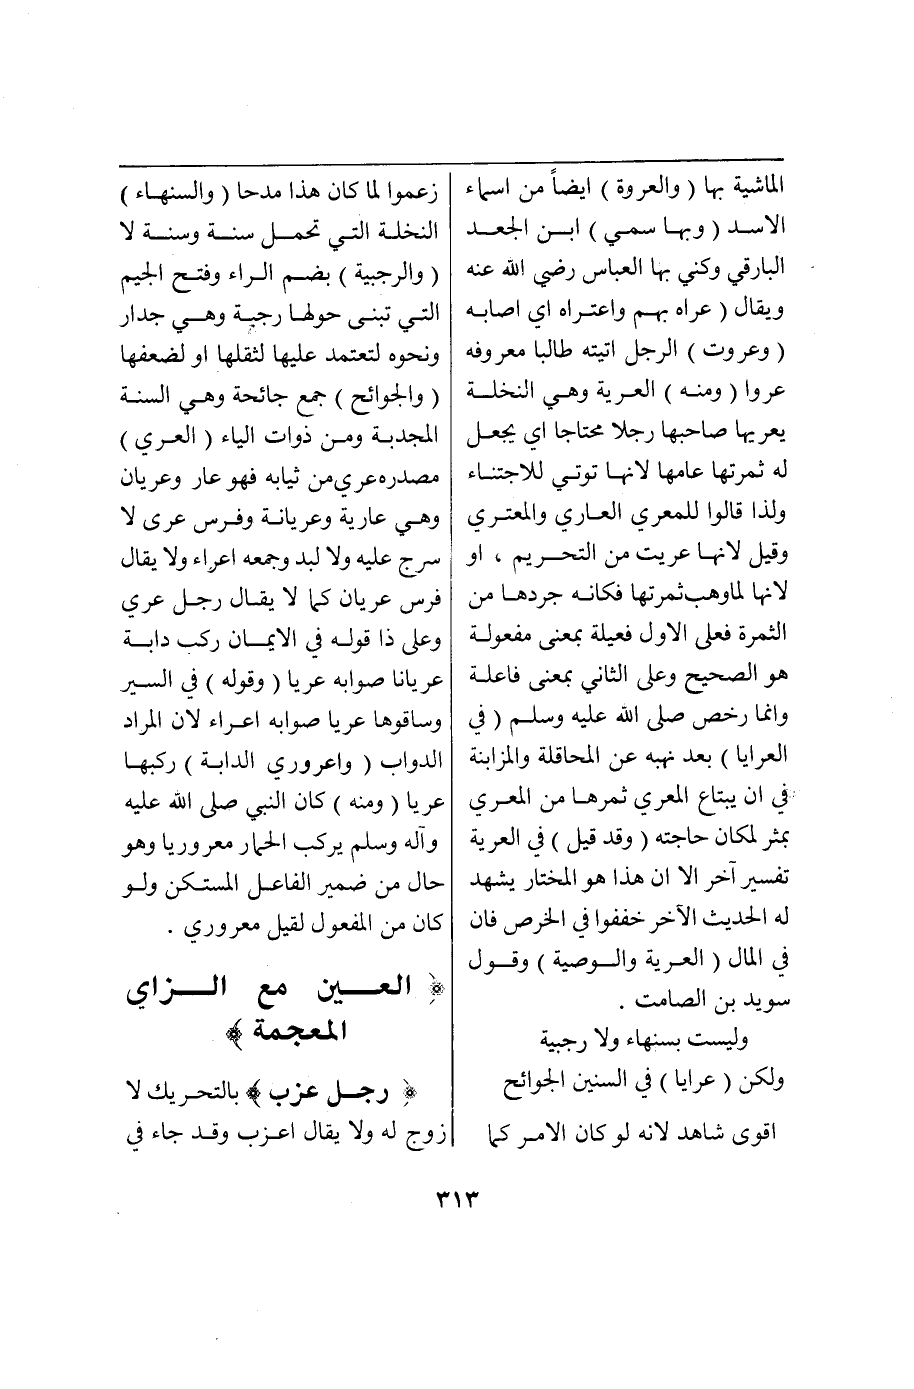 الماشية بها ( والعروة ) ايضاً من اسماء
الاسد ( وبها سمي ) ابن الجعد
البارقي وكني بها العباس رضي الله عنه
ويقال ( عراه بهم واعتراه اي اصابه
( وعروت ) الرجل اتيته طالبا معروفه
عروا ( ومنه ) العرية وهي النخلة
يعريها صاحبها رجلا محتاجا اي يجعل
له ثمرتها عامها لانها توتي للاجتناء
ولذا قالوا للمعري العاري والمعتري
وقيل لانها عريت من التحريم ، او
لانها لماوهب ثمرتها فكانه جردها من
الثمرة فعلى الاول فعيلة بمعنى مفعولة
هو الصحيح وعلى الثاني بمعنى فاعلة
وانما رخص صلى الله عليه وسلم ( في
العرايا ) بعد نهيه عن المحاقلة والمزابنة
في ان يبتاع المعري ثمرها من المعري
بثمر لمكان حاجته ( وقد قيل ) في العرية
تفسير آخر الا ان هذا هو المختار يشهد
له الحديث الآخر خففوا في الخرص فان
في المال ( العرية والوصية ) وقول
سويد بن الصامت .
وليست بسنهاء ولا رجبية
ولكن ( عرايا ) في السنين الجوائح
اقوى شاهد لانه لو كان الامر كما
زعموا لما كان هذا مدحا ( والسنهاء )
النخلة التي تحمل سنة وسنة لا
( والرجبية ) بضم الراء وفتح الجيم
التي تبنى حولها رجبة وهي جدار
ونحوه لتعتمد عليها لثقلها او لضعفها
( والجوائح ) جمع جائحة وهي السنة
المجدبة ومن ذوات الياء ( العري )
مصدره عري من ثيابه فهو عار وعريان
وهي عارية وعريانة وفرس عرى لا
سرج عليه ولا لبد وجمعه اعراء ولا يقال
فرس عريان كما لا يقال رجل عري
وعلى ذا قوله في الايمان ركب دابة
عريانا صوابه عريا ( وقوله ) في السير
وساقوها عريا صوابه اعراء لان المراد
الدواب ( واعروري الدابة ) ركبها
عريا ( ومنه ) كان النبي صلى الله عليه
وآله وسلم يركب الحمار معروريا وهو
حال من ضمير الفاعل المستكن ولو
كان من المفعول لقيل معروري .
﴿ العين مع الزاي
المعجمة ﴾
﴿ رجل عزب ﴾ بالتحريك لا
زوج له ولا يقال اعزب وقد جاء في
٣١٣